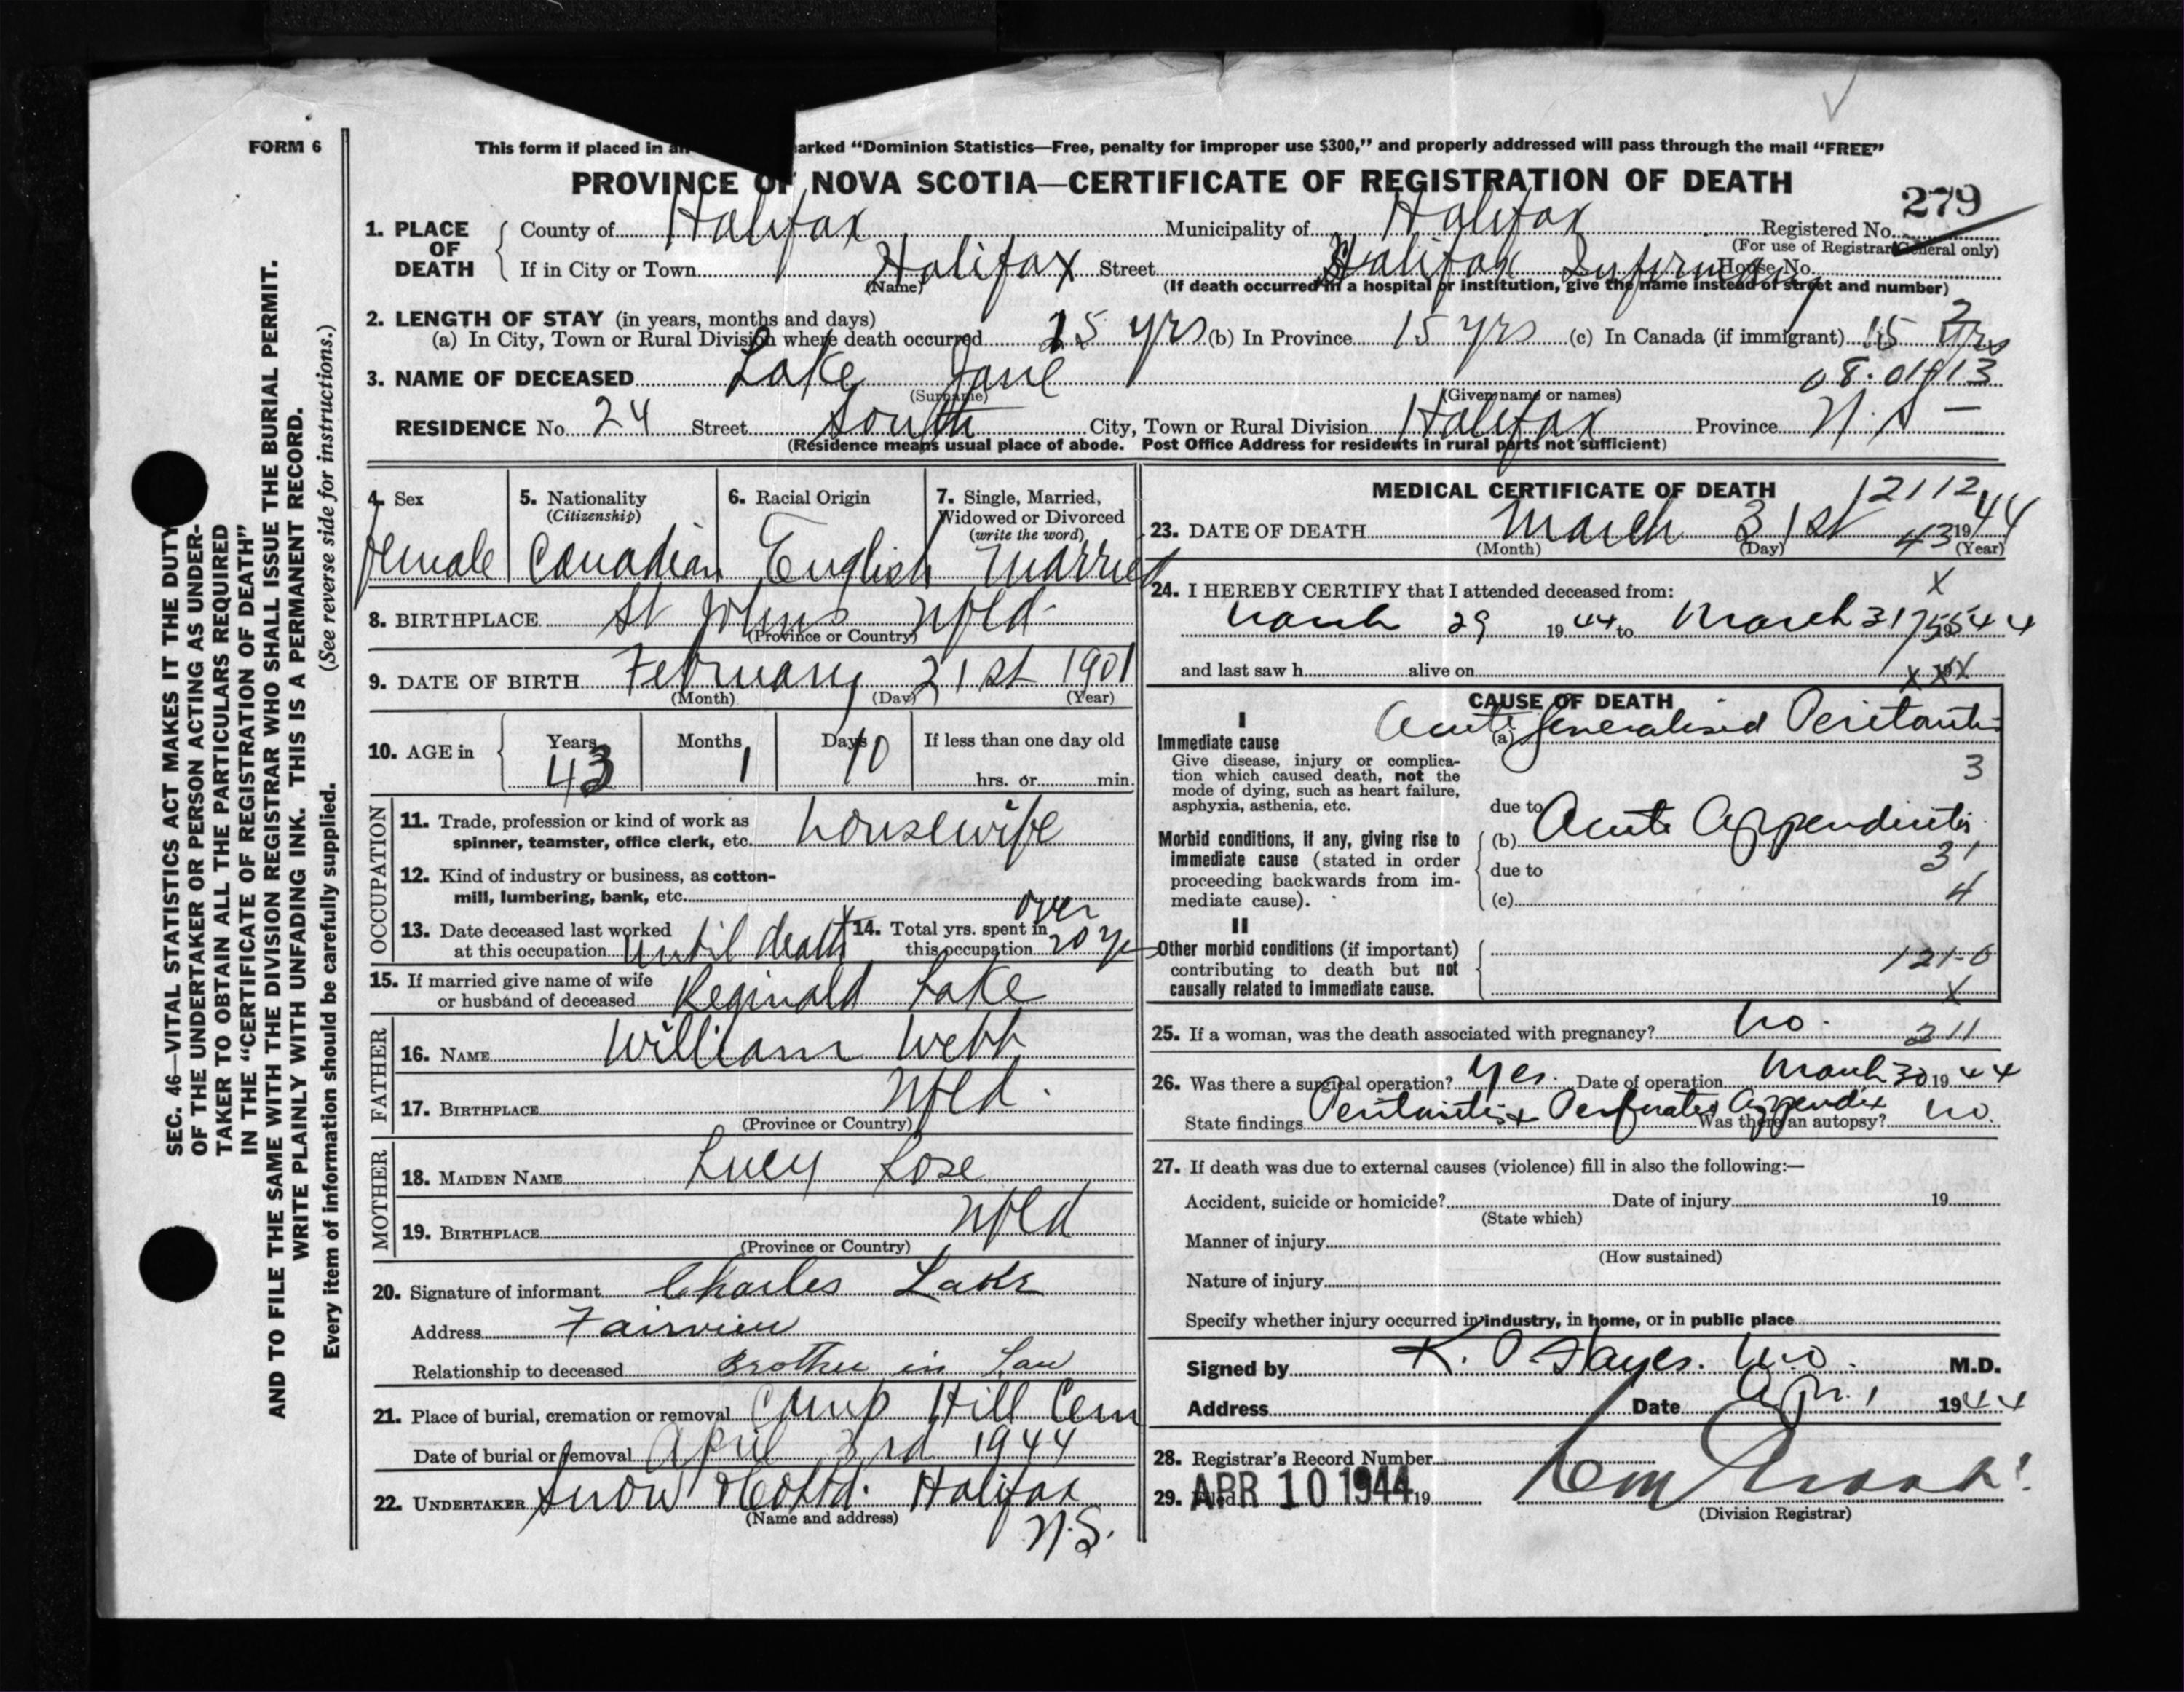 FORM 6
This form if placed in an arked "Dominion Statistics—Free, penalty for improper use $300," and properly addressed will pass through the mail "FREE"
PROVINCE OF NOVA SCOTIA—CERTIFICATE OF REGISTRATION OF DEATH
279
1. PLACE OF DEATH County of Halifax Municipality of Halifax Registered No.
(For use of Registrar General only)
If in City or Town Halifax Street Halifax Infirmary House No.
(Name) (If death occurred in a hospital or institution, give the name instead of street and number)
2. LENGTH OF STAY (in years, months and days) 2
(a) In City, Town or Rural Division where death occurred 15 yrs (b) In Province 15 yrs (c) In Canada (if immigrant) 15 yrs
3. NAME OF DECEASED Lake Jane 08.01913
(Surname) (Given name or names)
RESIDENCE No. 24 Street South City, Town or Rural Division Halifax Province N.S —
(Residence means usual place of abode. Post Office Address for residents in rural parts not sufficient)
4. Sex 5. Nationality 6. Racial Origin 7. Single, Married,
(Citizenship) Widowed or Divorced
(write the word)
female Canadian English Married
8. BIRTHPLACE St Johns Nfld
(Province or Country)
9. DATE OF BIRTH February 21st 1901
(Month) (Day) (Year)
10. AGE in Years Months Days If less than one day old
43 1 10 hrs. or min.
OCCUPATION
11. Trade, profession or kind of work as
spinner, teamster, office clerk, etc. housewife
12. Kind of industry or business, as cotton-
mill, lumbering, bank, etc.
13. Date deceased last worked 14. Total yrs. spent in over
at this occupation until death this occupation 20 yr
15. If married give name of wife
or husband of deceased Reginald Lake
FATHER
16. NAME William Webb
17. BIRTHPLACE Nfld.
(Province or Country)
MOTHER
18. MAIDEN NAME Lucy Lose
19. BIRTHPLACE Nfld
(Province or Country)
20. Signature of informant Charles Lake
Address Fairview
Relationship to deceased Brother in Law
21. Place of burial, cremation or removal Camp Hill Cem
Date of burial or removal April 3rd 1944
22. UNDERTAKER Snow & Co Ltd. Halifax
(Name and address)
N.S.
MEDICAL CERTIFICATE OF DEATH 12112
23. DATE OF DEATH March 31st 43 19 44
(Month) (Day) (Year)
24. I HEREBY CERTIFY that I attended deceased from: X
March 29 19 44 to March 31 19 44
and last saw h alive on 19
CAUSE OF DEATH
I
Immediate cause (a) Acute generalised Peritonitis
Give disease, injury or complica-
tion which caused death, not the 3
mode of dying, such as heart failure,
asphyxia, asthenia, etc. due to
Morbid conditions, if any, giving rise to (b) Acute Appendicitis
immediate cause (stated in order 3
proceeding backwards from im- due to
mediate cause). (c) 4
II
Other morbid conditions (if important) 121-0
contributing to death but not
causally related to immediate cause. X
25. If a woman, was the death associated with pregnancy? No. 211
26. Was there a surgical operation? Yes. Date of operation March 30 19 44
State findings Peritonitis & Perforated Appendix Was there an autopsy? No.
27. If death was due to external causes (violence) fill in also the following:—
Accident, suicide or homicide? Date of injury 19
(State which)
Manner of injury
(How sustained)
Nature of injury
Specify whether injury occurred in industry, in home, or in public place
Signed by K. O. Hayes. M.D. M.D.
Address Date Apr. 1 1944
28. Registrar's Record Number
29. Filed APR 10 1944 19
(Division Registrar)
SEC. 46—VITAL STATISTICS ACT MAKES IT THE DUTY
OF THE UNDERTAKER OR PERSON ACTING AS UNDER-
TAKER TO OBTAIN ALL THE PARTICULARS REQUIRED
IN THE "CERTIFICATE OF REGISTRATION OF DEATH"
AND TO FILE THE SAME WITH THE DIVISION REGISTRAR WHO SHALL ISSUE THE BURIAL PERMIT.
WRITE PLAINLY WITH UNFADING INK. THIS IS A PERMANENT RECORD.
Every item of information should be carefully supplied. (See reverse side for instructions.)